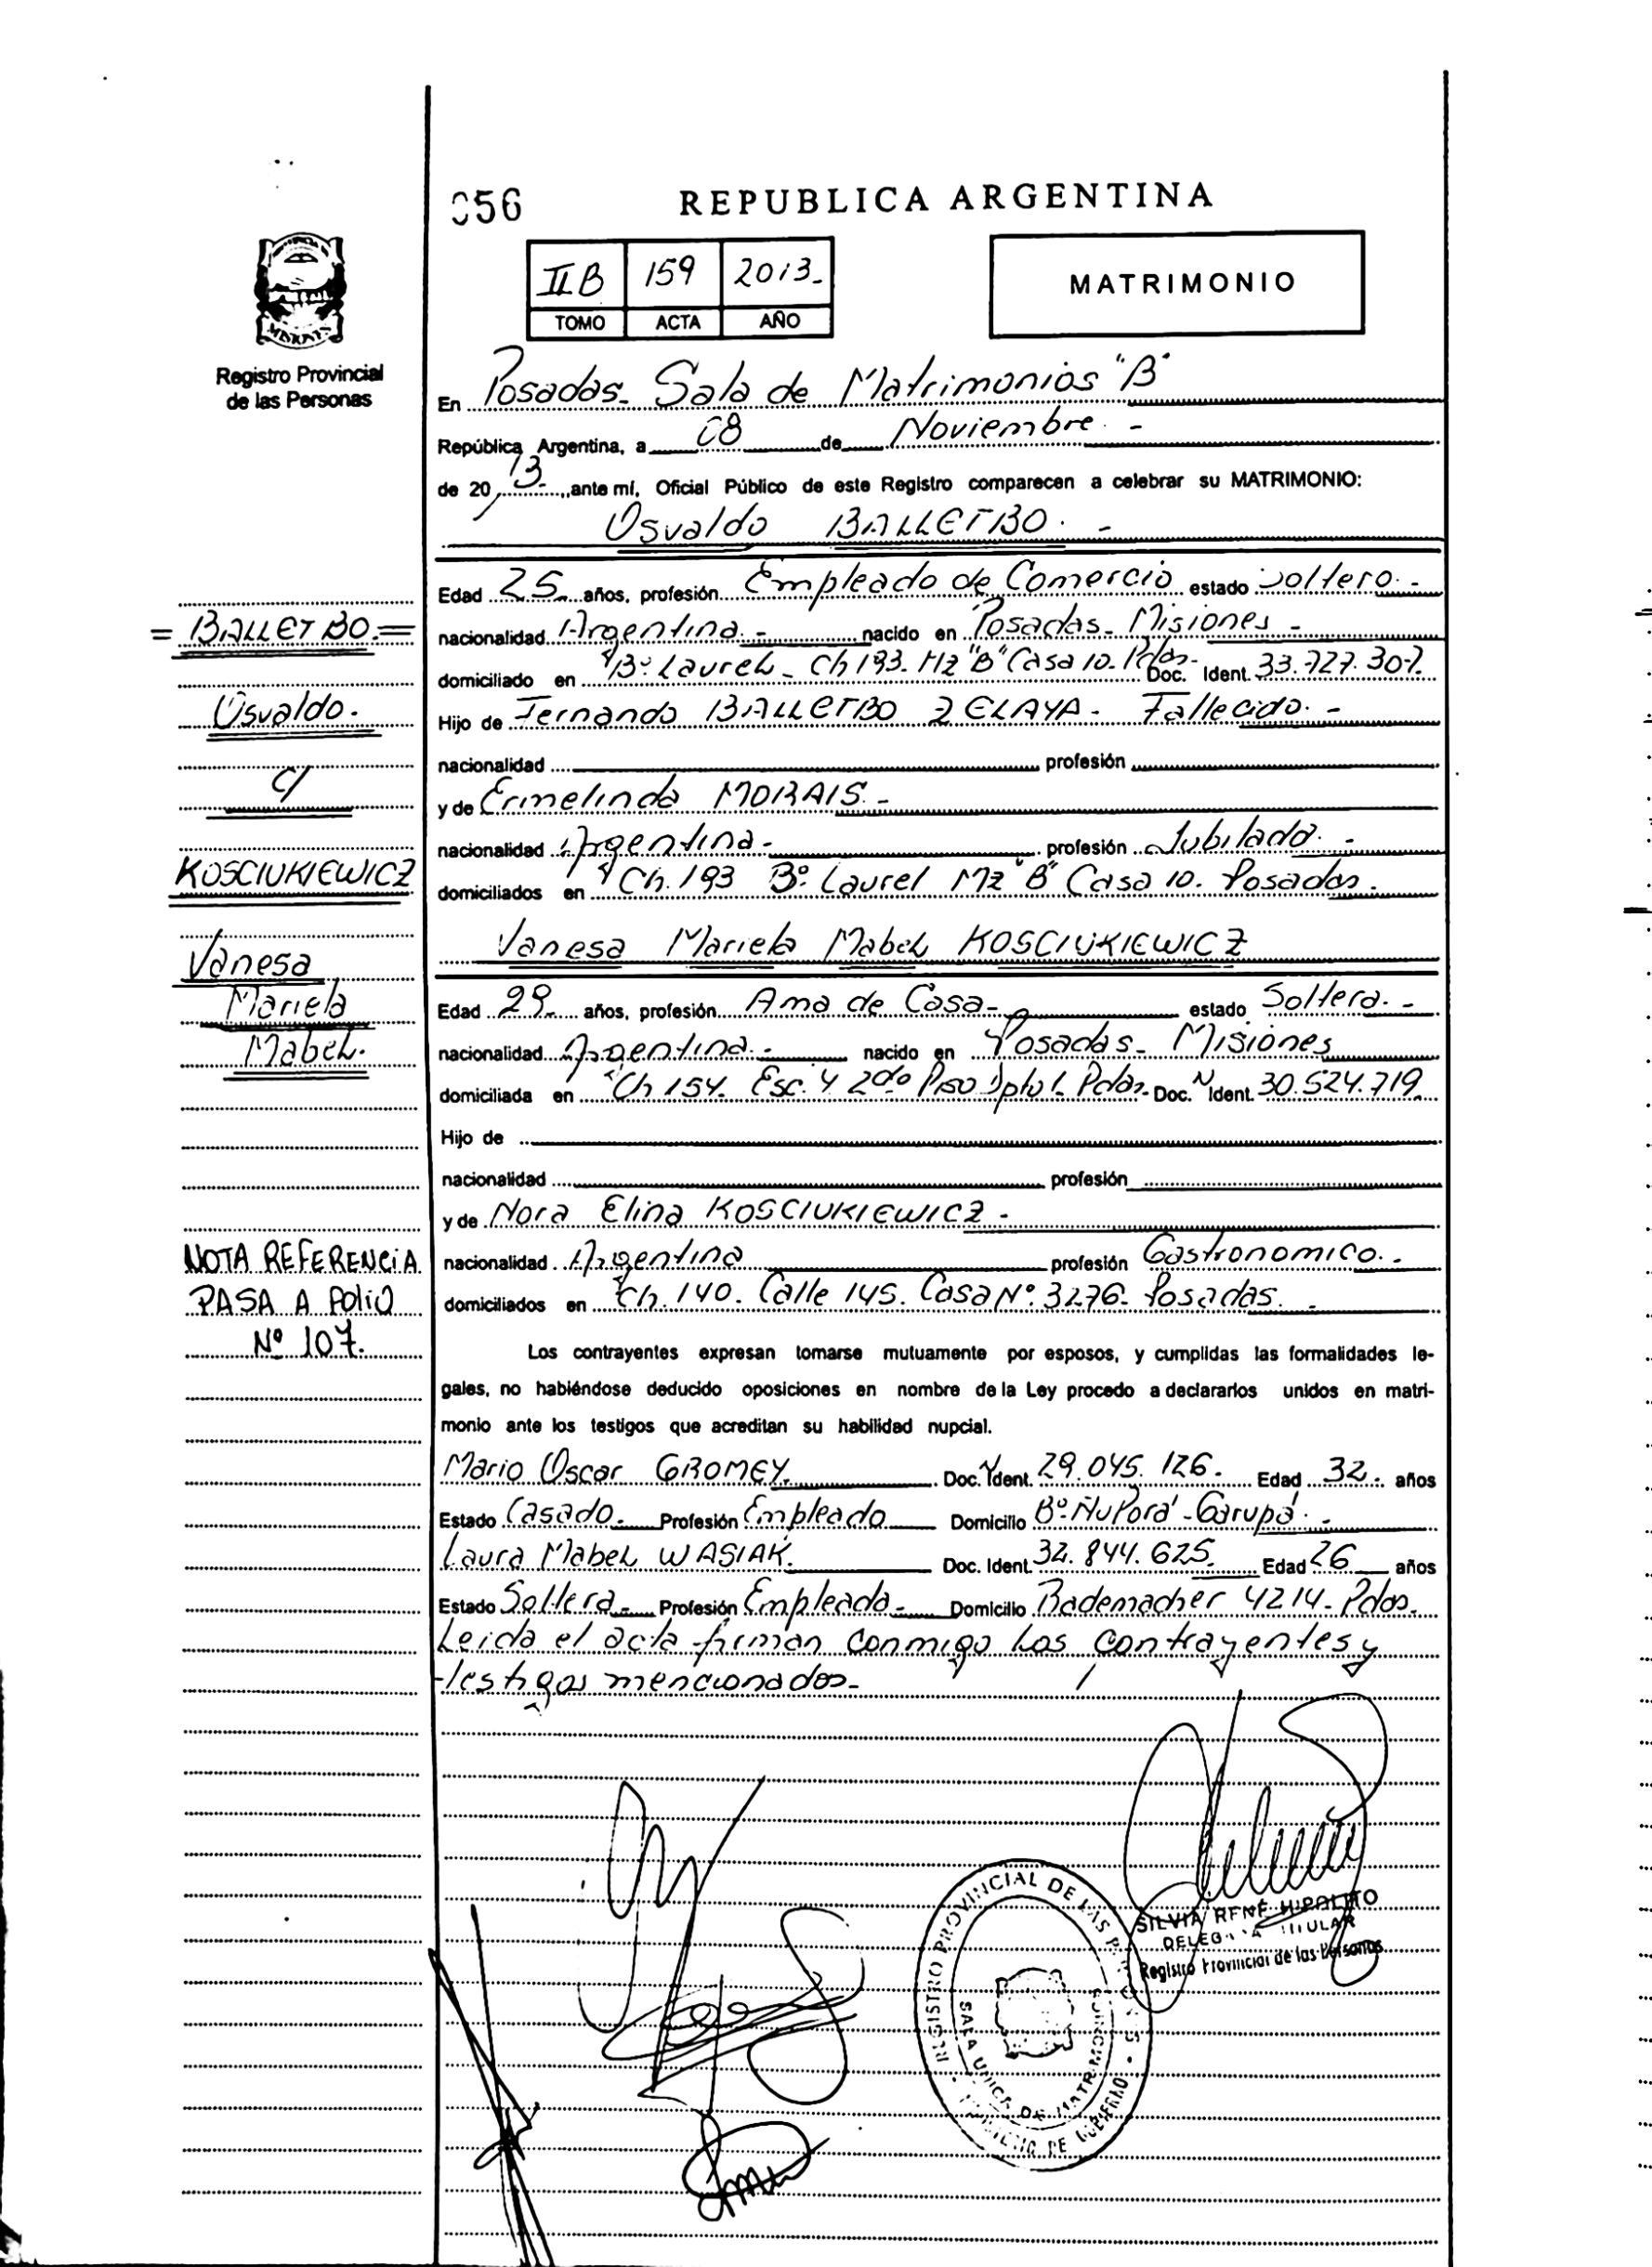 056
REPUBLICA ARGENTINA
II.B 159 2013.-
TOMO ACTA AÑO
MATRIMONIO
MISIONES
Registro Provincial
de las Personas
En Posadas.- Sala de Matrimonios "B"
República Argentina, a 08 de Noviembre.-
de 20 13.- ,ante mí, Oficial Público de este Registro comparecen a celebrar su MATRIMONIO:
Osvaldo BALLETBO.-
Edad 25.- años, profesión Empleado de Comercio estado Soltero.-
nacionalidad Argentina.- nacido en Posadas- Misiones-
domiciliado en Bº Laurel- Ch 193. Mz "B" Casa 10. Pdas- Doc. Ident. 33.727.307.
Hijo de Fernando BALLETBO ZELAYA- Fallecido.-
nacionalidad profesión
y de Ermelinda MORAIS.-
nacionalidad Argentina.- profesión Jubilada.-
domiciliados en Ch. 193 Bº Laurel Mz "B" Casa 10. Posadas.
Vanesa Mariela Mabel KOSCIUKIEWICZ
Edad 29. años, profesión Ama de Casa- estado Soltera.-
nacionalidad Argentina.- nacido en Posadas- Misiones
domiciliada en Ch 154. Esc. 4 2do Piso Dpto 1. Pdas- Doc. N Ident. 30.524.719.
Hijo de
nacionalidad profesión
y de Nora Elina KOSCIUKIEWICZ-
nacionalidad Argentina profesión Gastronomico.-
domiciliados en Ch. 140. Calle 145. Casa Nº 3276- Posadas.-
Los contrayentes expresan tomarse mutuamente por esposos, y cumplidas las formalidades le-
gales, no habiéndose deducido oposiciones en nombre de la Ley procedo a declararlos unidos en matri-
monio ante los testigos que acreditan su habilidad nupcial.
Mario Oscar GROMEY. Doc. Ident. 29.045.126. Edad 32. años
Estado Casado.- Profesión Empleado Domicilio Bº Ñu Porá- Garupá.-
Laura Mabel WASIAK. Doc. Ident. 32.844.625. Edad 26 años
Estado Soltera- Profesión Empleada- Domicilio Rademacher 4214- Pdas.
Leida el acta firman conmigo los contrayentes y
testigos mencionados-
= BALLETBO.=
Osvaldo.
C/
KOSCIUKIEWICZ
Vanesa
Mariela
Mabel.
NOTA REFERENCIA
PASA A FOLIO
Nº 107.
SILVIA RENÉ HIPOLITO
DELEGADA TITULAR
Registro Provincial de las Personas
REGISTRO PROVINCIAL DE LAS PERSONAS
SALA UNICA DE MATRIMONIOS
MINISTERIO DE GOBIERNO